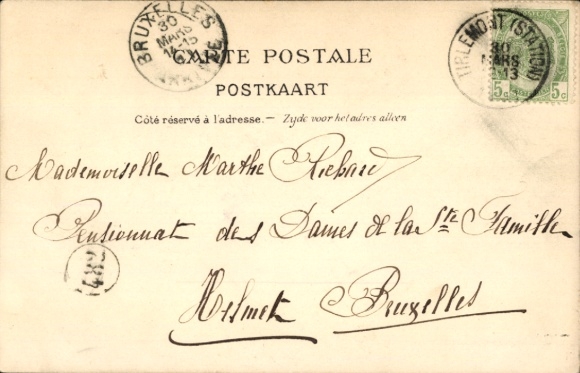 BRUXELLES
30
MARS
14-15
TIRLEMONT (STATION)
30
MARS
13
5c 5c
CARTE POSTALE
POSTKAART
Côté réservé à l'adresse.— Zyde voor het adres alleen
Mademoiselle Marthe Richard
Pensionnat des Dames de la Ste Famille
482
Helmet Bruxelles